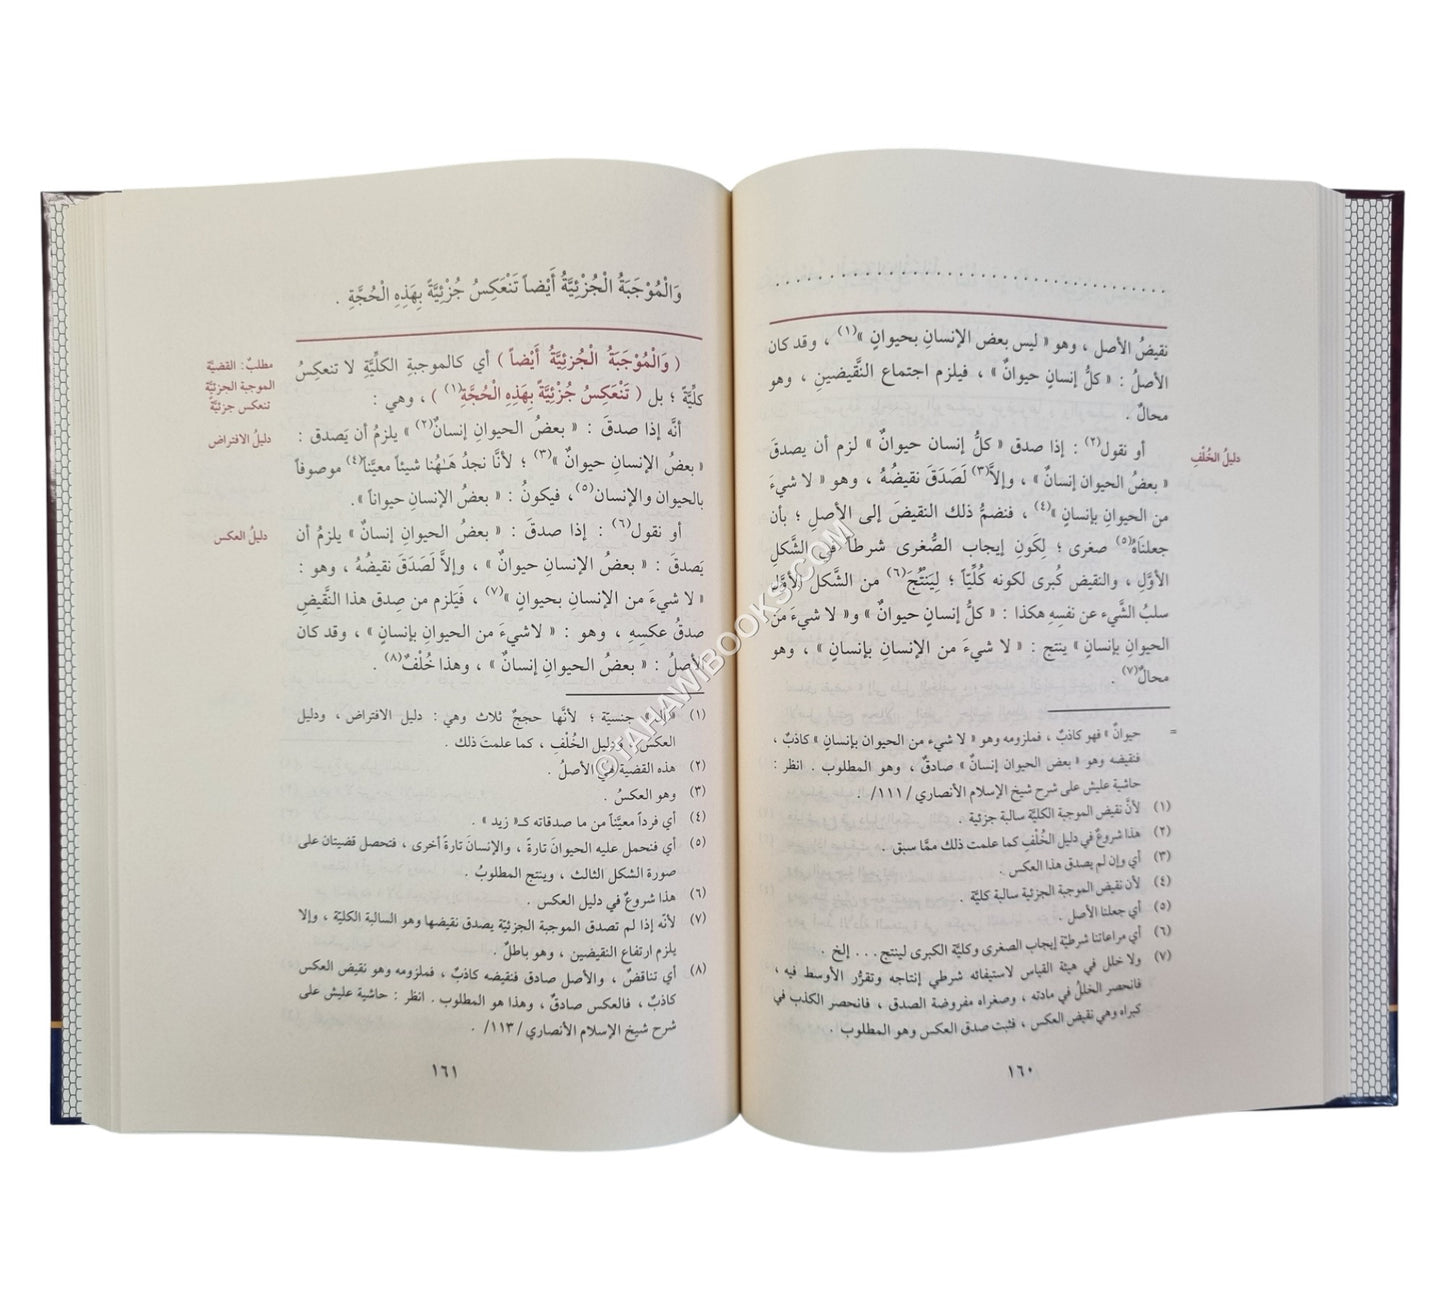 نقيضُ الأصل ، وهو « ليس بعض الإنسانِ بحيوانٍ »(١) ، وقد كان
الأصلُ : « كلُّ إنسانٍ حيوانٌ » ، فيلزم اجتماع النَّقيضينِ ، وهو
محالٌ .
أو نقول(٢) : إذا صدق « كلُّ إنسان حيوانٌ » لزم أن يصدقَ
« بعضُ الحيوان إنسانٌ » ، وإلاَّ(٣) لَصَدَقَ نقيضُهُ ، وهو « لا شيءَ
من الحيوانِ بإنسانٍ »(٤) ، فنضمُّ ذلك النقيضَ إلى الأصلِ ؛ بأن
جعلناهُ(٥) صغرى ؛ لِكَونِ إيجاب الصُّغرى شرطاً في الشَّكلِ
الأوَّلِ ، والنقيض كُبرى لكونه كُلِّيّاً ؛ لِيَنْتُجَ(٦) من الشَّكل الأوَّلِ
سلبُ الشَّيء عن نفسِهِ هكذا : « كلُّ إنسانٍ حيوانٌ » و« لا شيءَ من
الحيوانِ بإنسانٍ » ينتج : « لا شيءَ من الإنسانِ بإنسانٍ » ، وهو
محالٌ(٧) .
دليلُ الخُلْفِ
= حيوانٌ » فهو كاذبٌ ، فملزومه وهو « لا شيء من الحيوان بإنسانٍ » كاذبٌ ،
فنقيضه وهو « بعض الحيوان إنسانٌ » صادقٌ ، وهو المطلوب . انظر :
حاشية عليش على شرح شيخ الإسلام الأنصاري /١١١/ .
(١) لأنَّ نقيض الموجبة الكليَّة سالبة جزئية .
(٢) هذا شروعٌ في دليل الخُلْفِ كما علمت ذلك ممَّا سبق .
(٣) أي وإن لم يصدق هذا العكس .
(٤) لأن نقيض الموجبة الجزئية سالبة كليَّة .
(٥) أي جعلنا الأصل .
(٦) أي مراعاتنا شرطيّة إيجاب الصغرى وكليَّة الكبرى لينتج... إلخ .
(٧) ولا خلل في هيئة القياس لاستيفائه شرطي إنتاجه وتقرُّر الأوسط فيه ،
فانحصر الخللُ في مادته ، وصغراه مفروضة الصدق ، فانحصر الكذب في
كبراه وهي نقيض العكس ، فثبت صدق العكس وهو المطلوب .
١٦٠
وَالْمُوْجَبَةُ الْجُزْئِيَّةُ أَيْضاً تَنْعَكِسُ جُزْئِيَّةً بِهَذِهِ الْحُجَّةِ .
( وَالْمُوْجَبَةُ الْجُزْئِيَّةُ أَيْضاً ) أي كالموجبةِ الكلِّيَّةِ لا تنعكِسُ
كلِّيَّةً ؛ بل ( تَنْعَكِسُ جُزْئِيَّةً بِهَذِهِ الْحُجَّةِ(١) ) ، وهي :
أنَّه إذا صدقَ : « بعضُ الحيوانِ إنسانٌ(٢) » يلزمُ أن يَصدق :
« بعضُ الإنسانِ حيوانٌ »(٣) ؛ لأنَّا نجدُ هَـٰهُنا شيئاً معيَّناً(٤) موصوفاً
بالحيوان والإنسان(٥)، فيكونُ : « بعضُ الإنسانِ حيواناً » .
أو نقول(٦) : إذا صدقَ : « بعضُ الحيوانِ إنسانٌ » يلزمُ أن
يَصدقَ : « بعضُ الإنسانِ حيوانٌ » ، وإلاَّ لَصَدَقَ نقيضُهُ ، وهو :
« لا شيءَ من الإنسانِ بحيوانٍ »(٧) ، فَيَلزم من صِدق هذا النَّقيضِ
صدقُ عكسِهِ ، وهو : « لاشيءَ من الحيوانِ بإنسانٍ » ، وقد كان
الأصلُ : « بعضُ الحيوانِ إنسانٌ » ، وهذا خُلْفٌ(٨) .
مطلبٌ: القضيَّة
الموجبة الجزئيَّة
تنعكس جزئيَّة
دليلُ الافتراض
دليلُ العكس
(١) « أل » جنسيّة ؛ لأنَّها حججٌ ثلاث وهي : دليل الافتراض ، ودليل
العكس ، ودليل الخُلْفِ ، كما علمتَ ذلك .
(٢) هذه القضية هي الأصلُ .
(٣) وهو العكسُ .
(٤) أي فرداً معيَّناً من ما صدقاته كـ« زيد » .
(٥) أي فنحمل عليه الحيوانَ تارةً ، والإنسانَ تارةً أخرى ، فتحصل قضيتان على
صورة الشكل الثالث ، وينتج المطلوبُ .
(٦) هذا شروعٌ في دليل العكس .
(٧) لأنَّه إذا لم تصدق الموجبة الجزئيّة يصدق نقيضها وهو السالبة الكليَّة ، وإلا
يلزم ارتفاع النقيضين ، وهو باطلٌ .
(٨) أي تناقضٌ ، والأصل صادق فنقيضه كاذبٌ ، فملزومه وهو نقيض العكس
كاذبٌ ، فالعكس صادقٌ ، وهذا هو المطلوب . انظر : حاشية عليش على
شرح شيخ الإسلام الأنصاري /١١٣/ .
١٦١
©TAHAWIBOOKS.COM